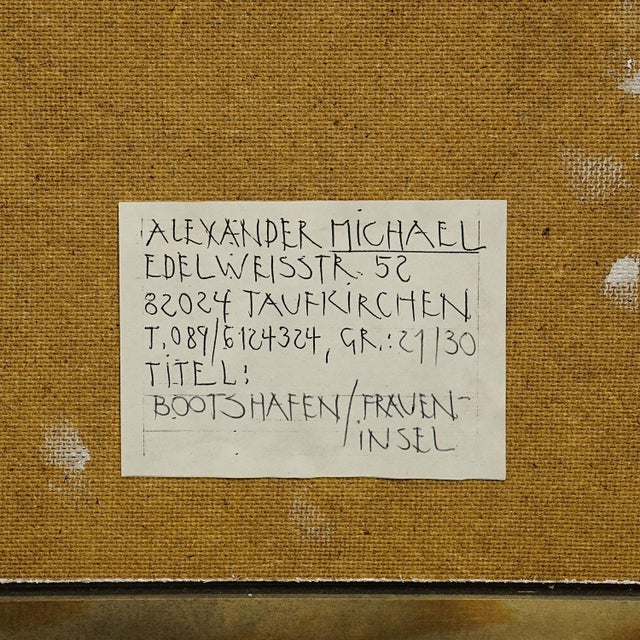 ALEXANDER MICHAEL
EDELWEISSTR. 52
82024 TAUFKIRCHEN
T. 089/6124324, GR.: 21/30
TITEL:
BOOTSHAFEN/FRAUEN-
INSEL